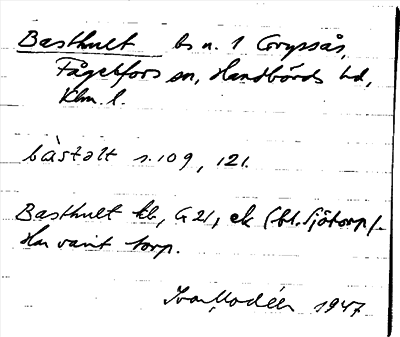 Basthult bs n. 1 Gryssås,
Fågelfors sn, Handbörds hd,
Klm. l.
bàstølt s. 109, 121.
Basthult kb, G 21, ek (bl. Sjötorp).
Har varit torp.
Ivar Modéer 1947